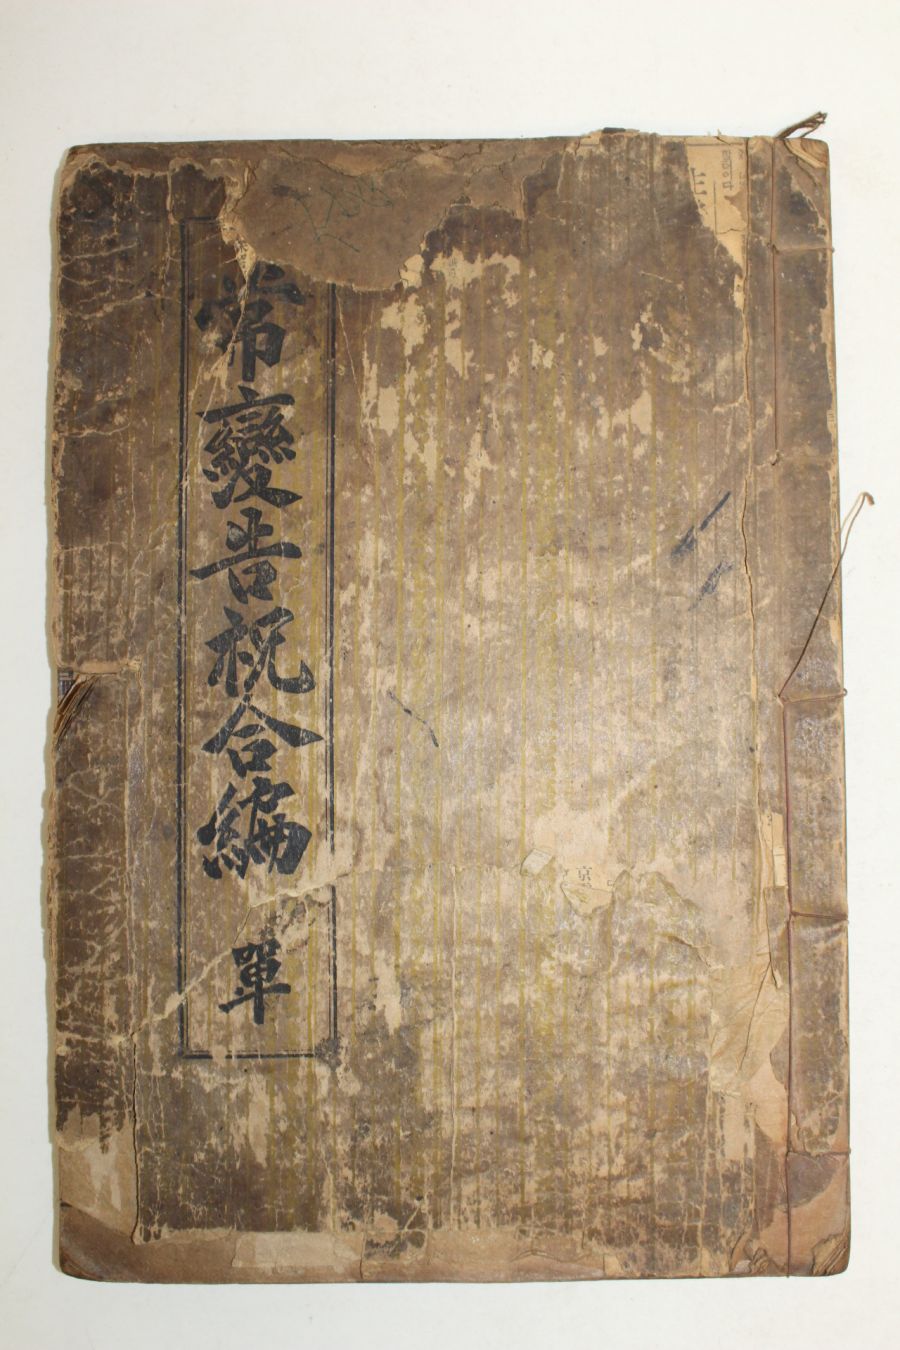 常變告祝合編 單
京